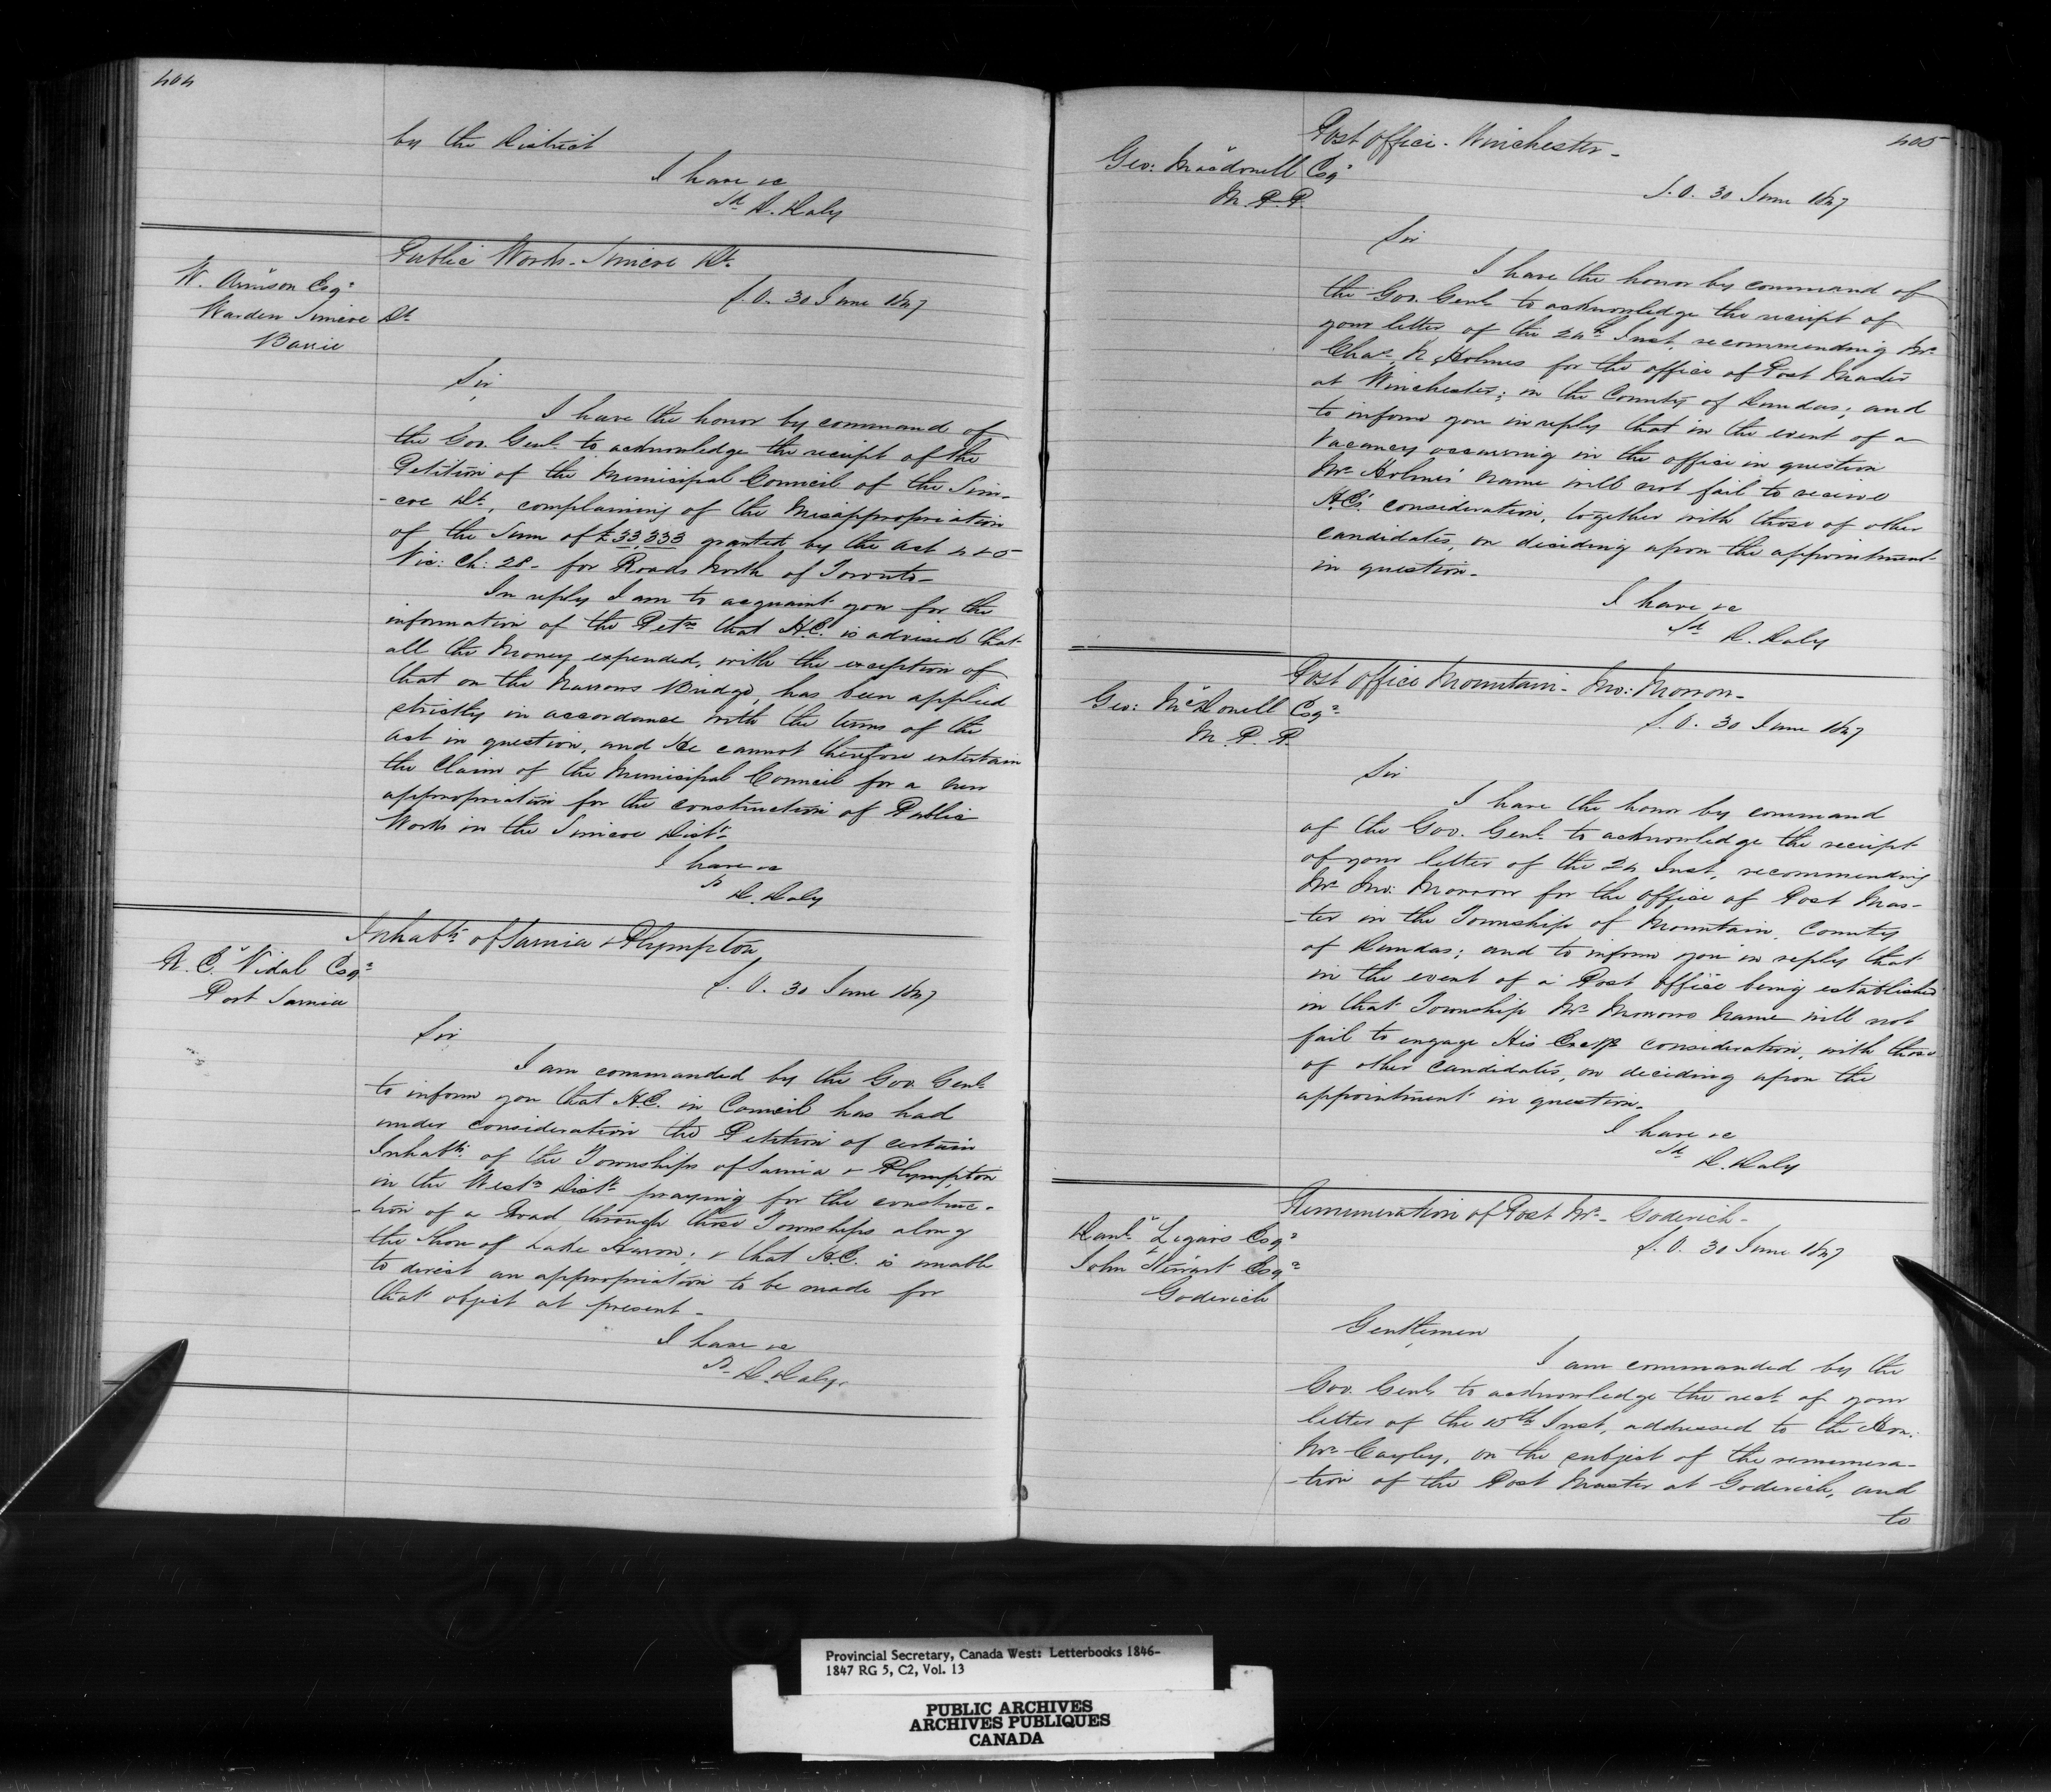 404
by the District
I have &c
Sd D. Daly
Public Works - Simcoe Dt.
W. Armson Esqr
Warden Simcoe Dt
Barrie
S.O. 30 June 1847
Sir,
I have the honor by command of
the Gov. Genl. to acknowledge the receipt of the
Petition of the Municipal Council of the Sim-
-coe Dt, complaining of the Misappropriation
of the Sum of £33,333 granted by the Act 4 & 5
Vic: Ch: 28 - for Roads North of Toronto -
In reply I am to acquaint you for the
information of the Petrs that H.E. is advised that
all the Money expended, with the exception of
that on the Narrows Bridge, has been applied
strictly in accordance with the terms of the
Act in question, and He cannot therefore entertain
the Claim of the Municipal Council for a new
appropriation for the construction of Public
Works in the Simcoe Distt
I have &c
Sd D. Daly
Inhabts of Sarnia & Plympton
A. E. Vidal Esqr
Port Sarnia
S.O. 30 June 1847
Sir
I am commanded by the Gov. Genl.
to inform you that H.E. in Council has had
under consideration the Petition of certain
Inhabts of the Townships of Sarnia & Plympton
in the Westn Distt praying for the construc-
-tion of a Road through those Townships along
the Shore of Lake Huron, & that H.E. is unable
to direct an appropriation to be made for
that object at present -
I have &c
Sd D. Daly.
405
Post Office - Winchester -
Geo: Macdonell Esqr
M.P.P.
S.O. 30 June 1847
Sir
I have the honor by command of
the Gov. Genl. to acknowledge the receipt of
your letter of the 24th Inst, recommending Mr
Chas. Holmes for the office of Post Master
at Winchester, in the County of Dundas; and
to inform you in reply that in the event of a
Vacancy occurring in the office in question
Mr Holmes' name will not fail to receive
H.E's consideration, together with those of other
candidates, on deciding upon the appointment
in question -
I have &c
Sd D. Daly
Post Office Mountain - Jno: Morrow -
Geo: McDonell Esqr
M.P.P.
S.O. 30 June 1847
Sir
I have the honor by command
of the Gov. Genl. to acknowledge the receipt
of your letter of the 24 Inst, recommending
Mr Jno: Morrow for the office of Post Mas-
-ter in the Township of Mountain, County
of Dundas; and to inform you in reply that
in the event of a Post Office being established
in that Township Mr Morrows Name will not
fail to engage His Excys consideration, with those
of other Candidates, on deciding upon the
appointment in question.
I have &c
Sd D. Daly
Remuneration of Post Mr - Goderich -
Danl Lizars Esqr
John Stewart Esqr
Goderich
S.O. 30 June 1847
Gentlemen,
I am commanded by the
Gov. Genl. to acknowledge the rect of your
letter of the 15th Inst, addressed to the Hon:
Mr Cayley, on the subject of the remunera-
-tion of the Post Master at Goderich, and
to
Provincial Secretary, Canada West: Letterbooks 1846-
1847 RG 5, C2, Vol. 13
PUBLIC ARCHIVES
ARCHIVES PUBLIQUES
CANADA